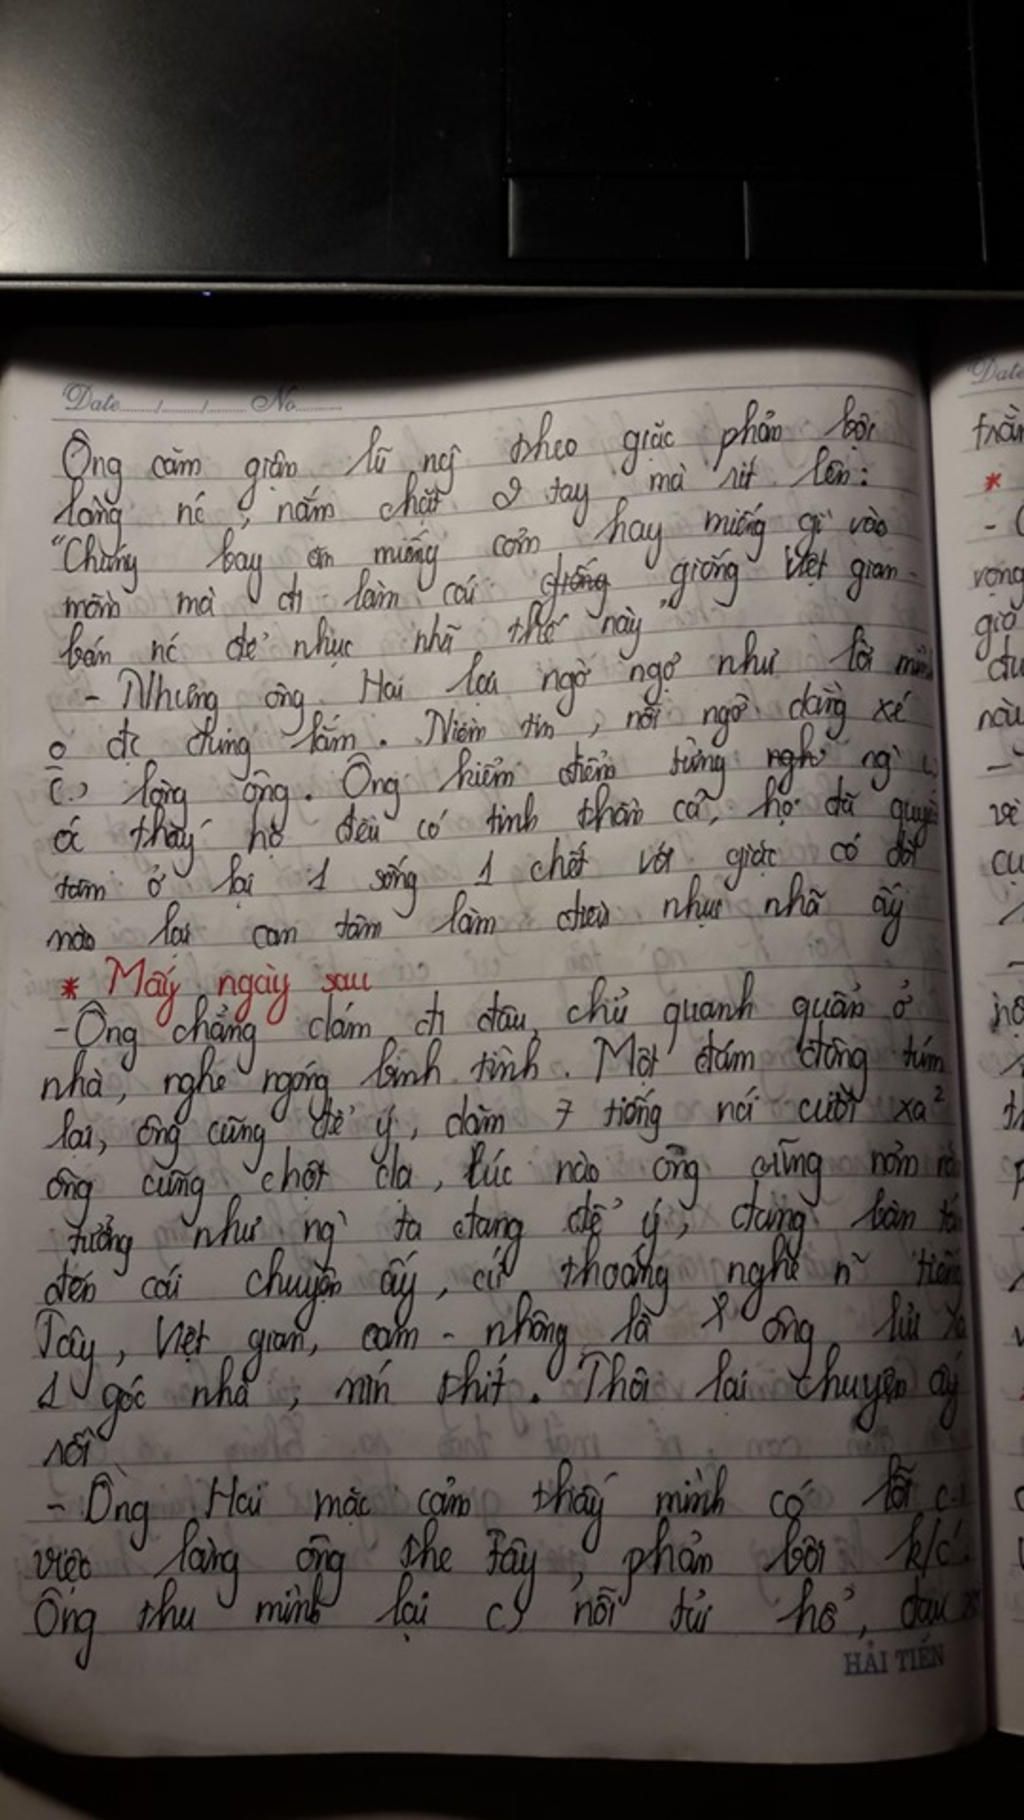 Date...../...../...... No.........
Ông căm giận lũ ng` theo giặc phản bội
làng nc, nắm chặt 2 tay mà rít lên:
"Chúng bay ăn miếng cơm hay miếng gì vào
mồm mà đi làm cái giống Việt gian
bán nc để nhục nhã thế này"
- Nhưng ông Hai lại ngờ ngợ như lời mình
o đc đúng lắm. Niềm tin, nỗi ngờ dằng xé
(..) lòng ông. Ông kiểm điểm từng ng`
óc thấy họ đều có tinh thần cả, họ đã quyết
tâm ở lại 1 sống 1 chết với giặc có đời
nào lại cam tâm làm điều nhục nhã ấy
* Mấy ngày sau
- Ông chẳng dám đi đâu, chỉ quanh quẩn ở
nhà, nghe ngóng binh tình. Một đám đông túm
lại, ông cũng để ý, dăm 7 tiếng nói cười xa²
ông cũng chột dạ, lúc nào ông cũng nơm
tưởng như ng` ta đang để ý, đang bàn
đến cái chuyện ấy, cứ thoáng nghe n~ tiếng
Tây, Việt gian, cam - nhông là ông lủi
1 góc nhà, nín thít. Thôi lại chuyện ấy
rồi
- Ông Hai mặc cảm thấy mình có lỗi
việc làng ông the Tây, phản bội k/c.
Ông thu mình lại nỗi tủi hổ, đau
HẢI TIẾN
Date
*
vọng
giờ
vì